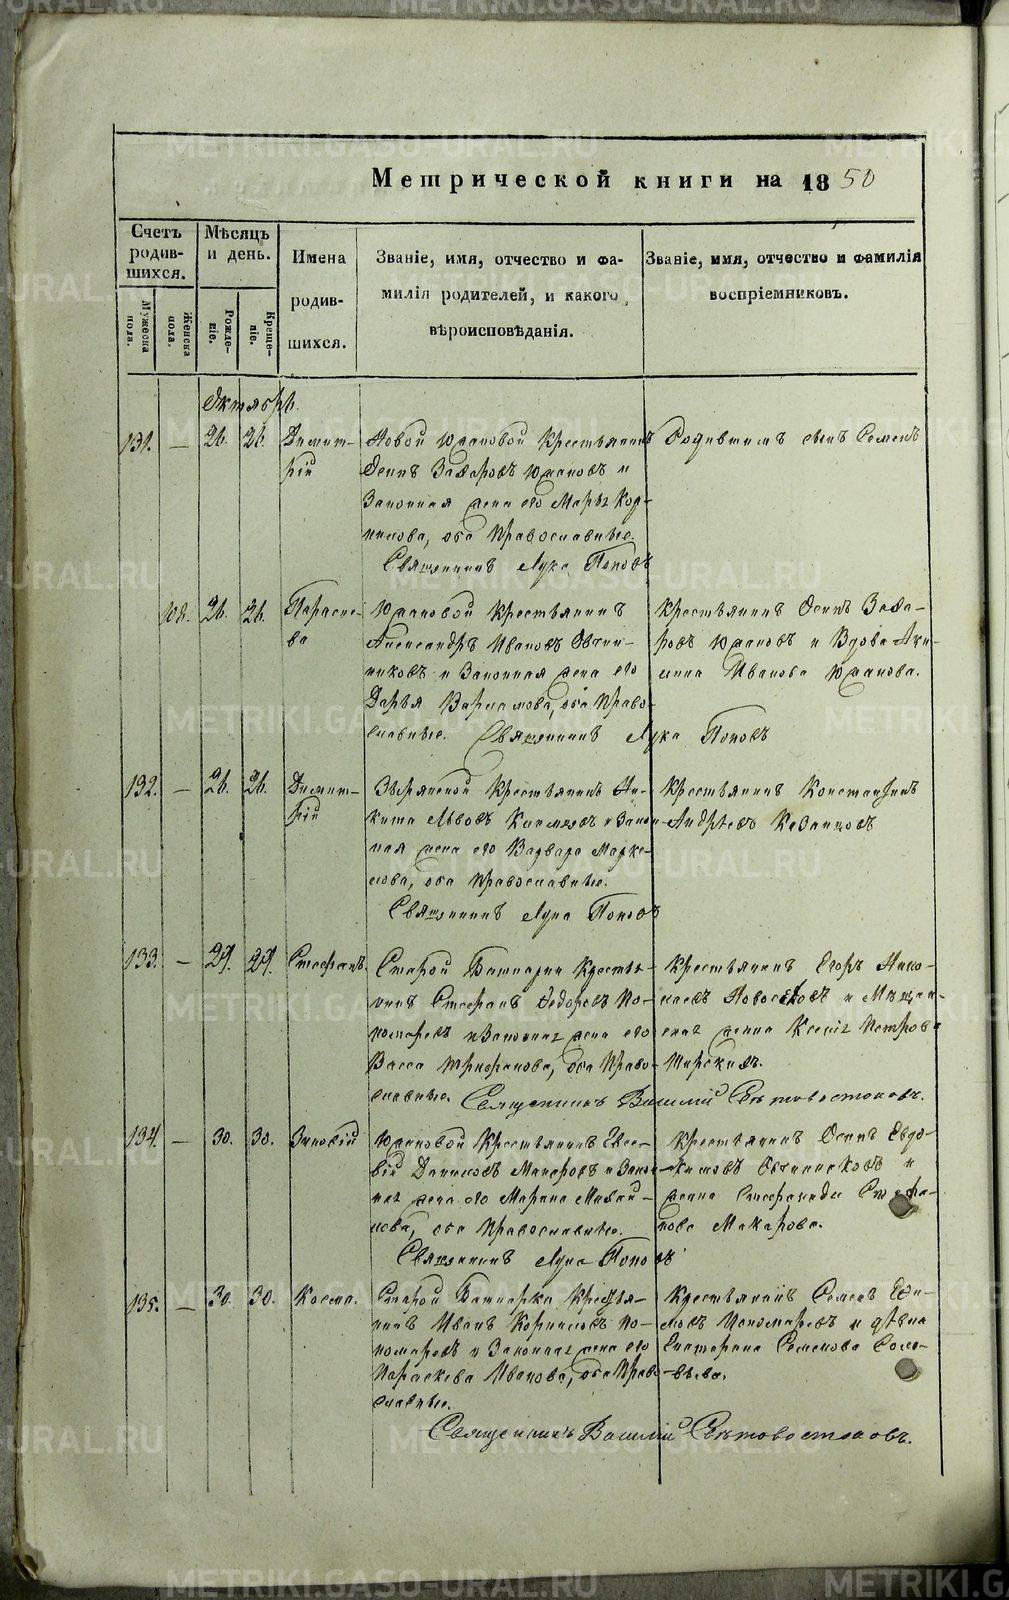 Метрической книги на 1850
Счетъ родившихся.
Мѣсяцъ и день.
Имена родившихся.
Званіе, имя, отчество и фамилія родителей, и какого вѣроисповѣданія.
Званіе, имя, отчество и фамилія воспріемниковъ.
Мужеска пола.
Женска пола.
Рожденіе.
Крещеніе.
Октябрь.
131. — 26. 26. Димитрій
Новой Южаковой Крестьянинъ
Осипъ Захаровъ Южаковъ и
Законная жена его Марѳа Кор-
нилова, оба Православные.
Священникъ Лука Поповъ
Родившаго сынъ Семенъ
108. 26. 26. Параске-
ва
Южаковой Крестьянинъ
Александръ Ивановъ Овчин-
никовъ и Законная жена его
Дарья Варламова, оба Право-
славные. Священникъ Лука Поповъ
Крестьянинъ Осипъ Заха-
ровъ Южаковъ и Вдова Аки-
лина Иванова Южакова.
132. — 26. 26. Димит-
рій
Зырянской Крестьянинъ Ни-
кита Львовъ и Закон-
ная жена его Варвара Марке-
лова, оба Православные.
Священникъ Лука Поповъ
Крестьянинъ Константинъ
Андрѣевъ Казанцовъ
133. — 29. 29. Стефанъ.
Старой Башкарки Кресть-
нинъ Стефанъ Ѳедоровъ По-
номаревъ и Законная жена его
Васса Трифонова, оба Право-
славные. Священникъ Василій Свѣтовостоковъ.
Крестьянинъ Егоръ Нико-
лаевъ Новоселовъ и Мѣщан-
ская жена Ксенія Петрова
Ширскихъ.
134. — 30. 30. Зиновій
Южаковой Крестьянинъ Евсе-
вій Даниловъ Макаровъ и Закон-
ная жена его Марина Михай-
лова, оба Православные.
Священникъ Лука Поповъ
Крестьянинъ Осипъ Евдо-
кимовъ Овчинниковъ и
жена Стефанида Стефа-
нова Макарова.
135. — 30. 30. Косма.
Старой Башкарки Крестья-
нинъ Иванъ Корниловъ По-
номаревъ и Законная жена его
Параскева Иванова, оба Право-
славные.
Священникъ Василій Свѣтовостоковъ.
Крестьянинъ Семенъ
Пономаревъ и дѣвка
Екатерина Семенова Соло-
вьева.
METRIKI.GASO-URAL.RU